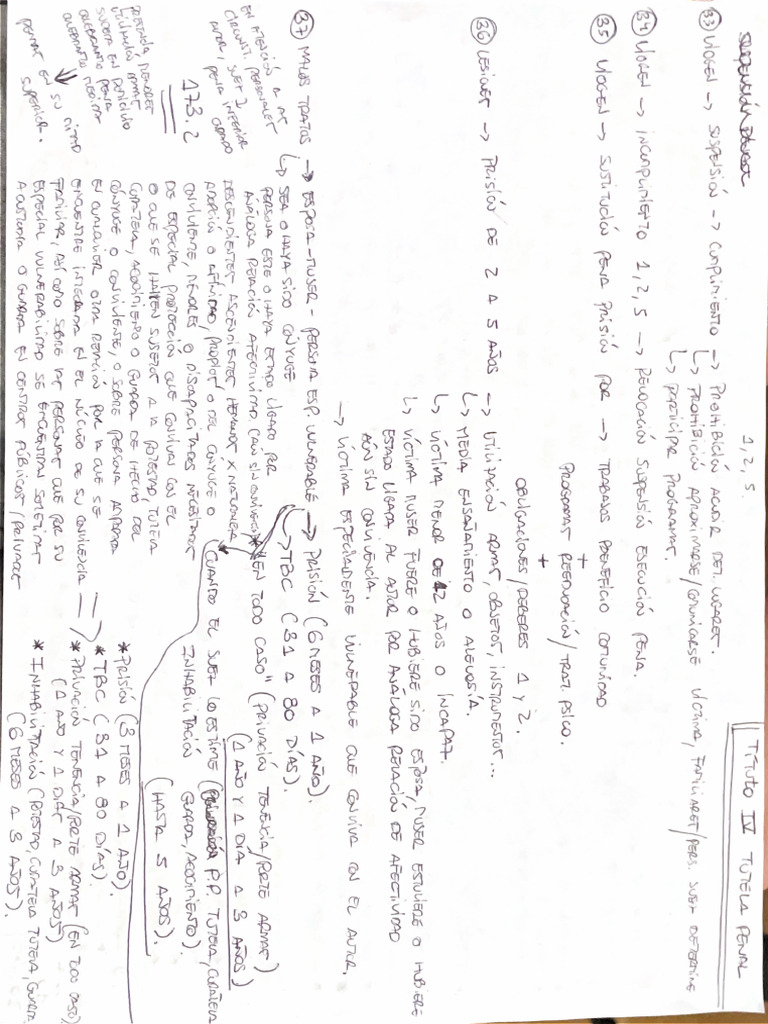 TÍTULO IV TUTELA PENAL
1, 2, 5.
33 VIOGEN → SUSPENSIÓN → CUMPLIMIENTO → PROHIBICIÓN ACUDIR DET. LUGARES.
↳ PROHIBICIÓN APROXIMARSE/COMUNICARSE VÍCTIMA, FAMILIARES/PERS. JUEZ DETERMINE
↳ PARTICIPAR PROGRAMAS.
34 VIOGEN → INCUMPLIMIENTO 1, 2, 5 → REVOCACIÓN SUSPENSIÓN EJECUCIÓN PENA.
35 VIOGEN → SUSTITUCIÓN PENA PRISIÓN POR → TRABAJOS BENEFICIO COMUNIDAD
+
PROGRAMAS REEDUCACIÓN/TRAT. PSICO.
+
OBLIGACIONES/DEBERES 1 Y 2.
36 LESIONES → PRISIÓN DE 2 A 5 AÑOS → UTILIZACIÓN ARMAS, OBJETOS, INSTRUMENTOS...
↳ MEDIA ENSAÑAMIENTO O ALEVOSÍA.
↳ VÍCTIMA MENOR DE 12 AÑOS O INCAPAZ.
↳ VÍCTIMA MUJER FUERE O HUBIERE SIDO ESPOSA, MUJER ESTUVIERE O HUBIERE
ESTADO LIGADA AL AUTOR POR ANÁLOGA RELACIÓN DE AFECTIVIDAD
AÚN SIN CONVIVENCIA.
→ VÍCTIMA ESPECIALMENTE VULNERABLE QUE CONVIVA CON EL AUTOR.
37 MALOS TRATOS → ESPOSA-MUJER - PERSONA ESP. VULNERABLE → PRISIÓN (6 MESES A 1 AÑO).
↳ TBC (31 A 80 DÍAS).
* "EN TODO CASO" (PRIVACIÓN TENENCIA/PORTE ARMAS)
(1 AÑO Y 1 DÍA A 3 AÑOS)
CUANDO EL JUEZ LO ESTIME (P.P. TUTELA, CURATELA
INHABILITACIÓN GUARDA, ACOGIMIENTO).
(HASTA 5 AÑOS).
↳ SEA O HAYA SIDO CÓNYUGE
PERSONA ESTE O HAYA ESTADO LIGADO POR
ANÁLOGA RELACIÓN AFECTIVIDAD (AÚN SIN CONVIVENCIA
DESCENDIENTES ASCENDIENTES HERMANOS X NATURALEZA
ADOPCIÓN O AFINIDAD, PROPIOS O DEL CÓNYUGE O
CONVIVIENTE, MENORES O DISCAPACITADOS NECESITADOS
DE ESPECIAL PROTECCIÓN QUE CONVIVAN CON EL
O QUE SE HALLEN SUJETOS A LA POTESTAD, TUTELA
CURATELA, ACOGIMIENTO O GUARDA DE HECHO DEL
CÓNYUGE O CONVIVIENTE, O SOBRE PERSONA AMPARADA
EN CUALQUIER OTRA RELACIÓN POR LA QUE SE
ENCUENTRE INTEGRADA EN EL NÚCLEO DE SU CONVIVENCIA
FAMILIAR, ASÍ COMO SOBRE LAS PERSONAS QUE POR SU
ESPECIAL VULNERABILIDAD SE ENCUENTRAN SOMETIDAS
A CUSTODIA O GUARDA EN CENTROS PÚBLICOS/PRIVADOS
* PRISIÓN (3 MESES A 1 AÑO).
* TBC (31 A 80 DÍAS).
* PRIVACIÓN TENENCIA/PORTE ARMAS (EN TODO CASO)
(1 AÑO Y 1 DÍA A 3 AÑOS)
* INHABILITACIÓN (POTESTAD, CURATELA TUTELA, GUARDA
(6 MESES A 3 AÑOS).
EN ATENCIÓN A LAS
CIRCUNST. PERSONALES
AUTOR, JUEZ
PENA INFERIOR
GRADO
173.2
PRESENCIA MENORES
UTILIZANDO ARMAS
SUCEDA EN DOMICILIO
QUEBRANTO PENA
QUEBRANTO MEDIDA
PENAS EN SU MITAD
SUPERIOR.